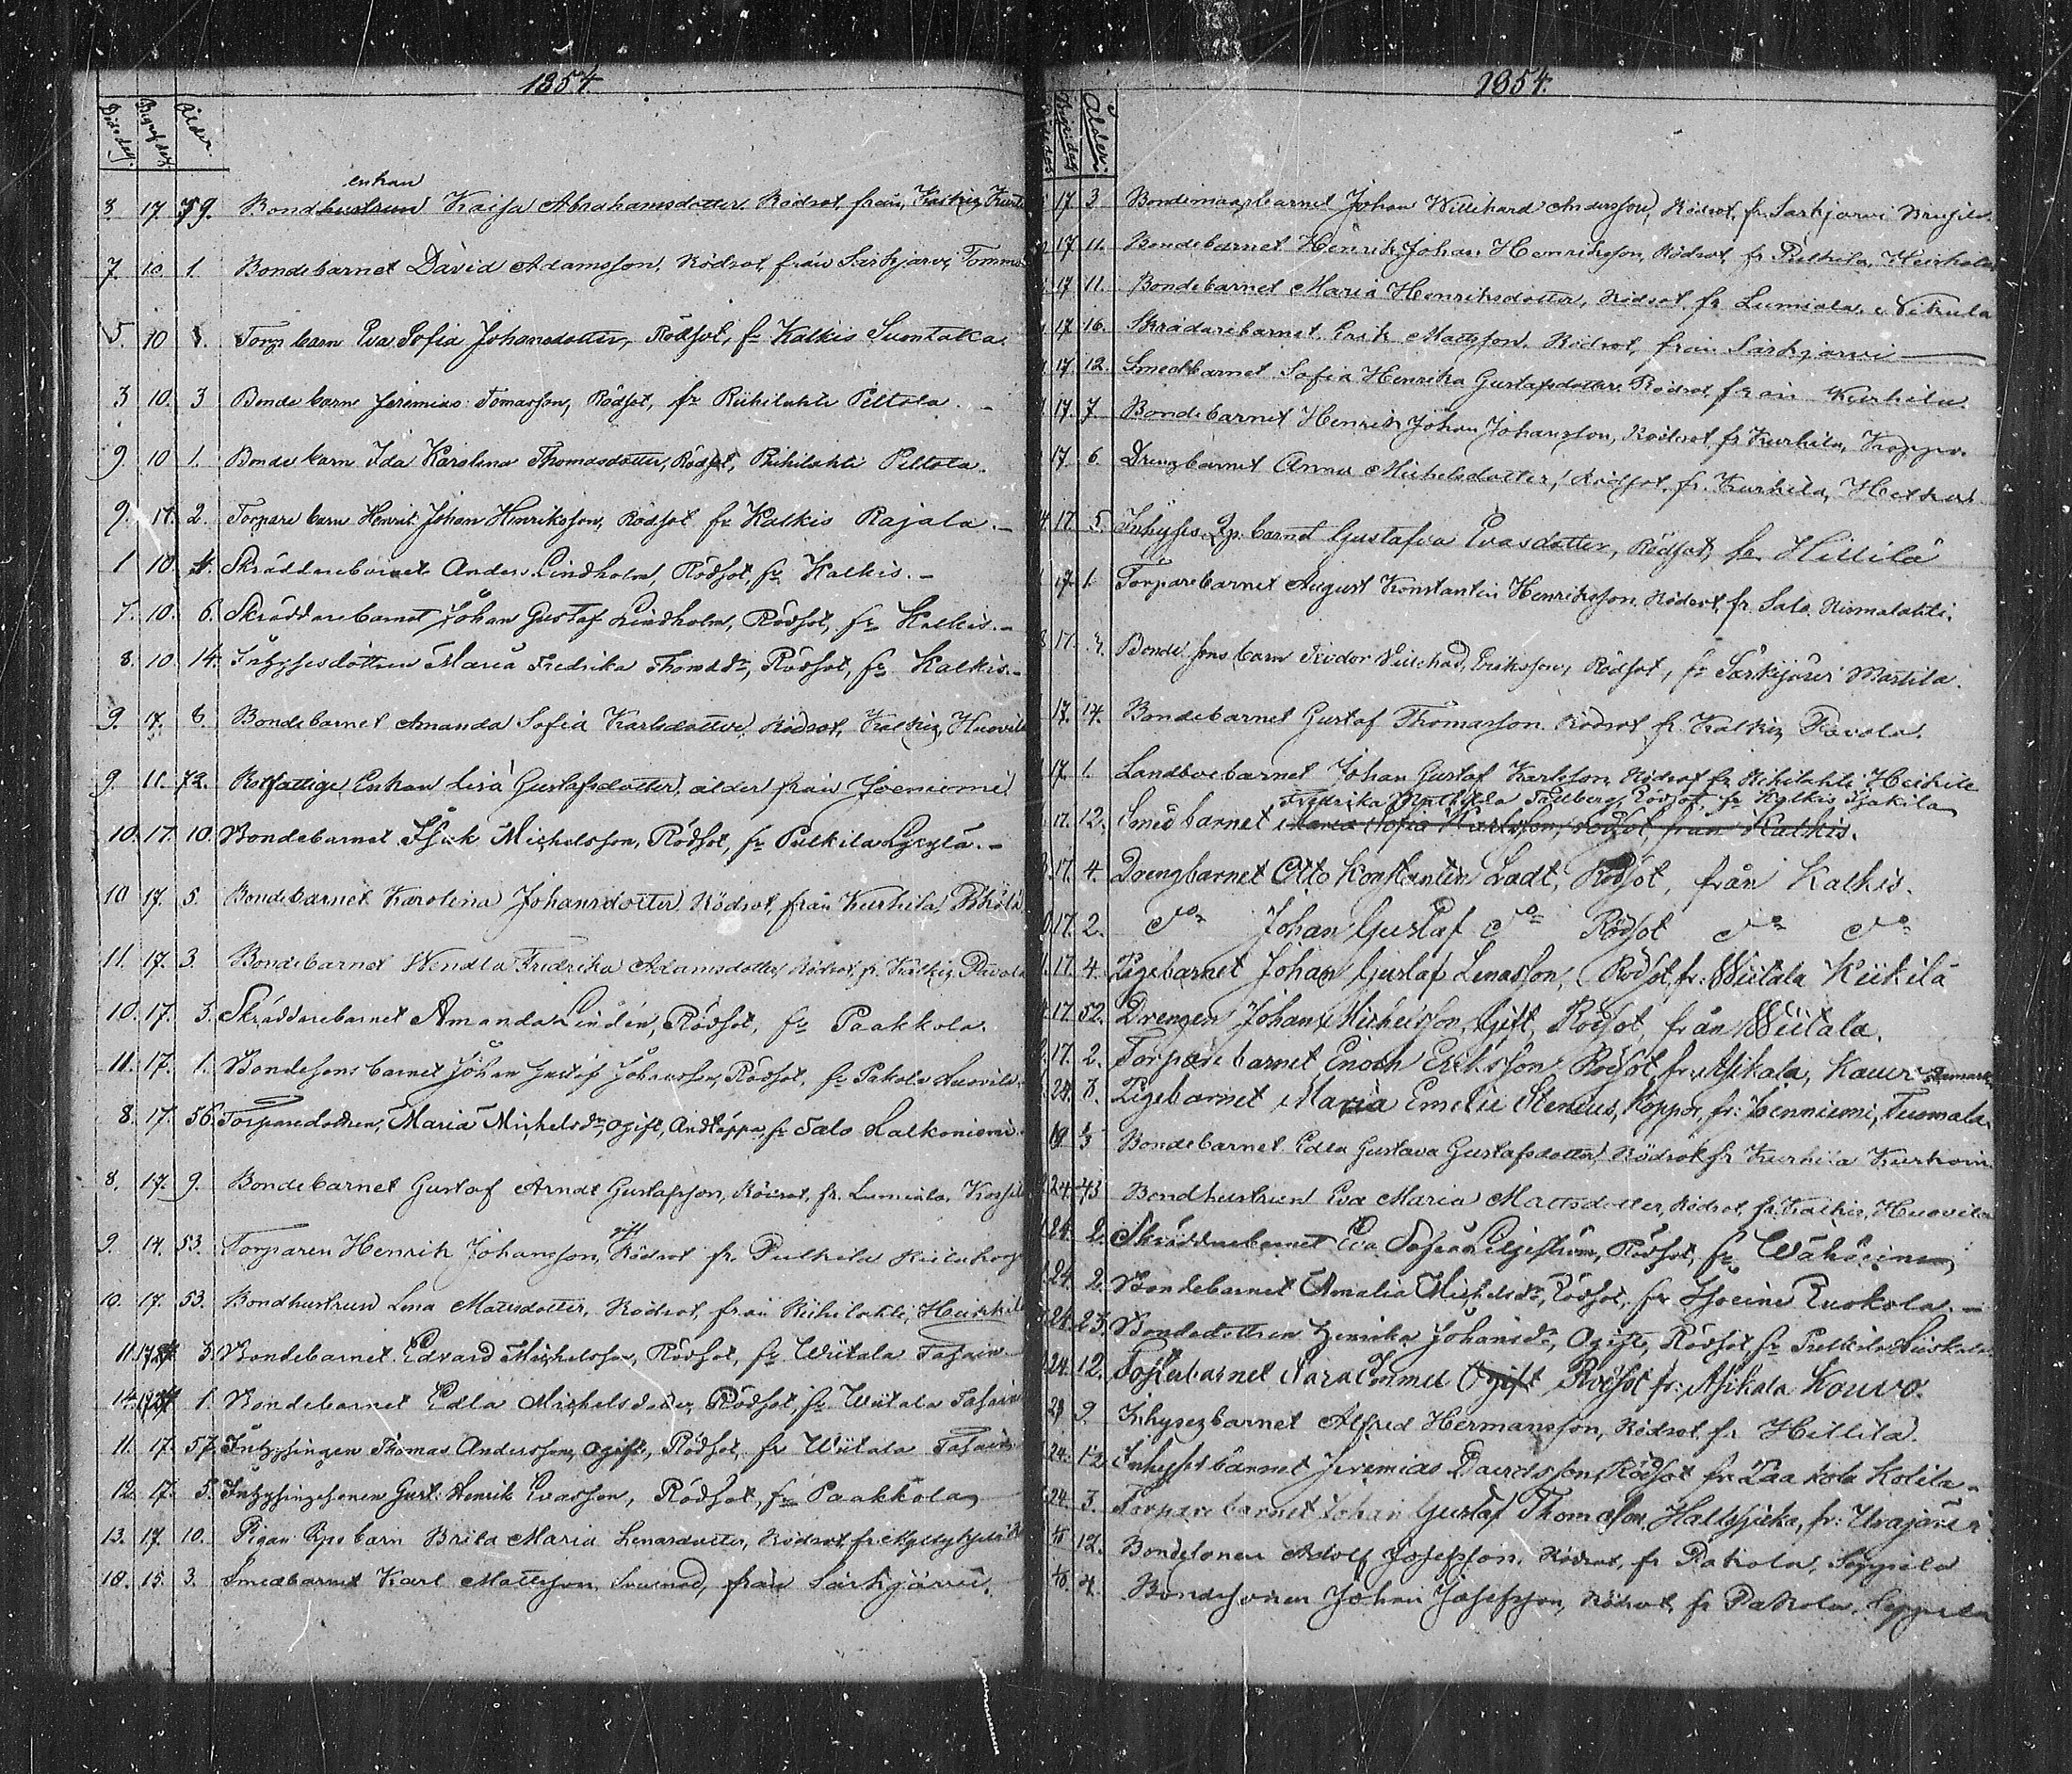 1854
Döds dag. Begrafn dag Ålder.
enkan
3 17 79. Bondhustrun Kaisa Abrahamsdotter. Rödsot, från Kalkis,
7 10 1. Bondebarnet David Adamsson, Rödsot, från Särkjärvi, Tommo
5. 10 Torp. barn Eva Sofia Johansdotter, Rödsot, fr Kalkis Suontaka
3 10. 3 Bonde barn Jeremias Tomasson, Rödsot, fr Riihilahti Peltola. -
9. 10 1. Bonde barn Ida Karolina Thomasdotter, Rödsot, Riihilahti Peltola.
9. 17. 2. Torpare barn Henrik Johan Henriksson, Rödsot fr Kalkis Rajala. -
1 10. 4. Skräddarebarnet Anders Lindholm, Rödsot, fr Kalkis. -
7. 10. 6. Skräddarebarnet Johan Gustaf Lindholm, Rödsot, fr Kalkis. -
8. 10. 14. Inhysesdottren Maria Fredrika Thomasdr, Rödsot, fr Kalkis. -
9. 17. 8. Bondebarnet Amanda Sofia Karlsdotter, Rödsot, Kalkis, Huovila
9. 11. 72. Rotfattige Enkan Lisa Gustafsdotter, ålder från Joeniemi.
10. 17. 10. Bondebarnet Isak Michelsson, Rödsot, fr Pulkila Lyylä. -
10 17. 5. Bondebarnet Karolina Johansdotter Rödsot, från Kurhila,
11. 17. 3. Bondebarnet Wendla Fredrika Adamsdotter, Rödsot, fr. Kalkis,
10. 17. 3. Skräddarebarnet Amanda Lindén, Rödsot, fr Paakkola.
11. 17. 1. Bondesons barnet Johan Gustaf Johansson, Rödsot, fr Pakola
8. 17. 56. Torparedottren, Maria Michelsdr, ogift, Andtäppa, fr Salo Salkoniemi
8. 17. 9. Bondebarnet Gustaf Arndt Gustafsson, Rödsot, fr. Lumiala,
gift
9. 14. 53. Torparen Henrik Johansson, Rödsot fr. Pulkila
10. 17. 53. Bondhustrun Lena Mattsdotter, Rödsot, från Riihilahti, Heikkilä
11. 3. Bondebarnet Edvard Michelsson, Rödsot, fr Wiitala
14. 1. Bondebarnet Edla Michelsdotter, Rödsot, fr Wiitala
11. 17. 57. Inhysingen Thomas Andersson, ogift, Rödsot, fr Wiitala
12. 17. 5. Inhysingesonen Gust. Henrik Evasson, Rödsot, fr Paakkola
13. 17. 10. Pigan Rps barn Brita Maria Lenasdotter, Rödsot, fr.
10. 15. 3. Smedbarnet Karl Mattsson, från Särkjärvi.
1854.
Ålder.
17 3 Bondemågsbarnet Johan Willehard Andersson, Rödsot, fr. Särkjärvi
17 11. Bondebarnet Henrik Johan Henriksson, Rödsot, fr Pulkila,
17 11. Bondebarnet Maria Henriksdotter, Rödsot, fr Lumiala,
17 16. Skrädarebarnet Erik Mattsson. Rödsot, från Särkjärvi
17 12. Smedbarnet Sofia Henrika Gustafsdotter Rödsot från Kurhila.
17. 7. Bondebarnet Henrik Johan Johansson, Rödsot, fr Kurhila,
17. 6. Drengbarnet Anna Michelsdotter, Rödsot, fr. Kurhila,
17. 5. Inhyses Qp. barnet Gustafva Evasdotter, Rödsot, fr. Hillilä
17. 1. Torparebarnet August Konstantin Henriksson, Rödsot, fr. Salo,
17. Bondesons barn Eriksson, Rödsot, fr Särkijärvi Marttila.
17. 14. Bondebarnet Gustaf Thomasson. Rödsot, fr. Kalkis, Pavola.
17. 1. Landboebarnet Johan Gustaf Karlsson, Rödsot fr. Riihilahti Heikkilä
Fredrika Mathilda Tallberg, Rödsot, fr Kalkis
17. 12. Smed barnet Maria Sofia Karlsson, Rödsot, från Kalkis.
17. 4. Drengbarnet Otto Konstantin Ladt, Rödsot, från Kalkis.
17. 2. do Johan Gustaf do Rödsot do do
17. 4. Pigebarnet Johan Gustaf Lenasson, Rödsot, fr: Wiitala Kiikilä
17. 52. Drengen Johan Michelsson, Gift, Rödsot, från Wiitala.
17. 2. Torparebarnet Enoch Eriksson Rödsot, fr. Asikala,
24. 3. Pigebarnet Maria Emelie Stenius, Koppor, fr: Joenniemi, Tuomala.
Bondebarnet Edla Gustava Gustafsdotter, Rödsot fr Kurhila
24. 43 Bondhustrun Eva Maria Mattsdotter, Rödsot, fr. Kalkis, Huovila
24. 2. Skräddarebarnet Eva Sofia Liljeström, Rödsot, fr Wähäeine
24. 2. Bondebarnet Amalia Michelsdr, Rödsot, fr Isoeine Euokola. -
24. 23. Bondedottren Henrika Johansdr, Ogift, Rödsot, fr Pulkila
24. 12. Fosterbarnet Sara Emmel Ogift Rödsot fr: Asikala Kouvo.
9. Inhysesbarnet Alfred Hermansson, Rödsot fr. Hillilä.
24. Inhysesbarnet Jeremias Davidsson Rödsot fr. Paakola Kolila -
24. 3. Torparebarnet Johan Gustaf Thomasson, Halssjuka, fr: Urajärvi
12. Bondesonen Adolf Josefsson. Rödsot, fr Pakola, Seppälä
Bondesonen Johan Josefsson, Rödsot, fr Pakola, Seppälä